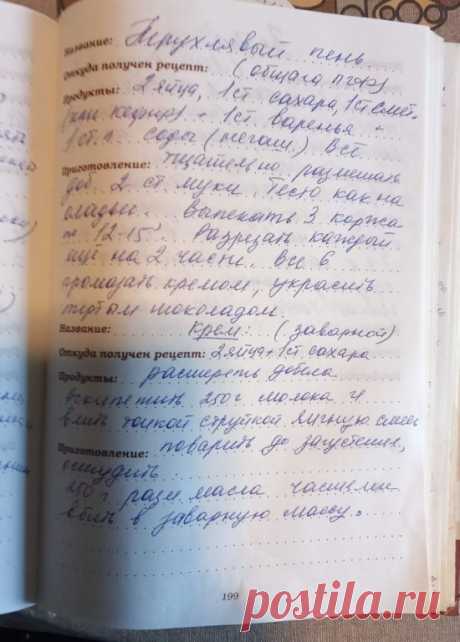 Название: Трухлявый пень
Откуда получен рецепт: (общага ПГФ)
Продукты: 2 яйца, 1 ст. сахара, 1 ст. смет.
(или кефир) + 1 ст. варенья +
1 ст. л. соды (негаш.) Всё
Приготовление: тщательно размешать
доб. 2 ст. муки. Тесто как на
оладьи. Выпекать 3 коржа
12-15'. Разрезать каждый
еще на 2 части. Все 6
промазать кремом, украсить
тёртым шоколадом.
Название: Крем: (заварной)
Откуда получен рецепт: 2 яйца + 1 ст. сахара
Продукты: растереть добела
вскипятить 250 г. молока и
влить тонкой струйкой яичную смесь
Приготовление: поварить до загустения,
остудить
250 г. разм. масла частями
вбить в заварную массу.
199
postila.ru